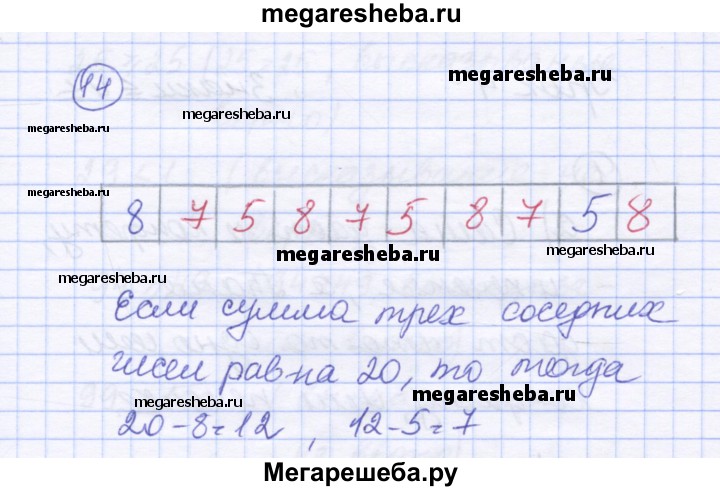 megaresheba.ru
14
megaresheba.ru
megaresheba.ru
megaresheba.ru
8 7 5 8 7 5 8 7 5 8
megaresheba.ru
megaresheba.ru
Если сумма трех соседних
чисел равна 20, то тогда
megaresheba.ru
megaresheba.ru
20-8=12, 12-5=7
Мегарешеба.ру